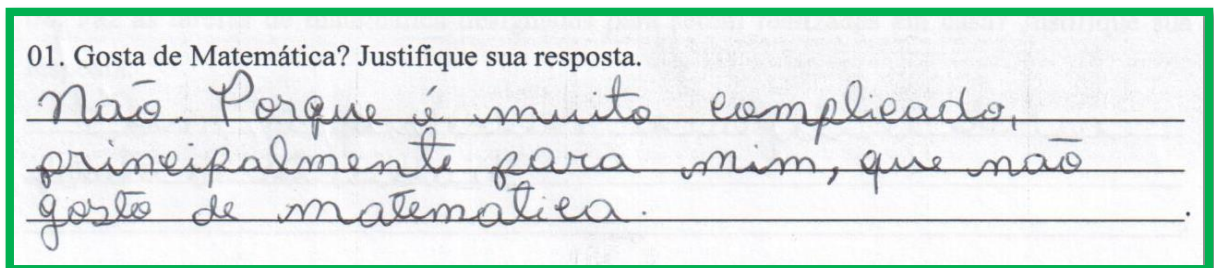 01. Gosta de Matemática? Justifique sua resposta.
Não. Porque é muito complicado,
principalmente para mim, que não
gosto de matematica.